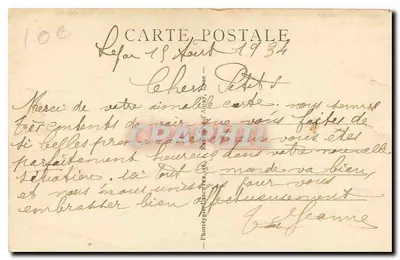 10€
CARTE POSTALE
15 Août 1934
Chers Petits
Merci de votre aimable carte. nous sommes
très contents de voir que vous faites de
si belles et que vous êtes
parfaitement heureux dans votre nouvelle
situation. ici tout le monde va bien
et nous nous unissons pour vous
embrasser bien affectueusement
Jeanne